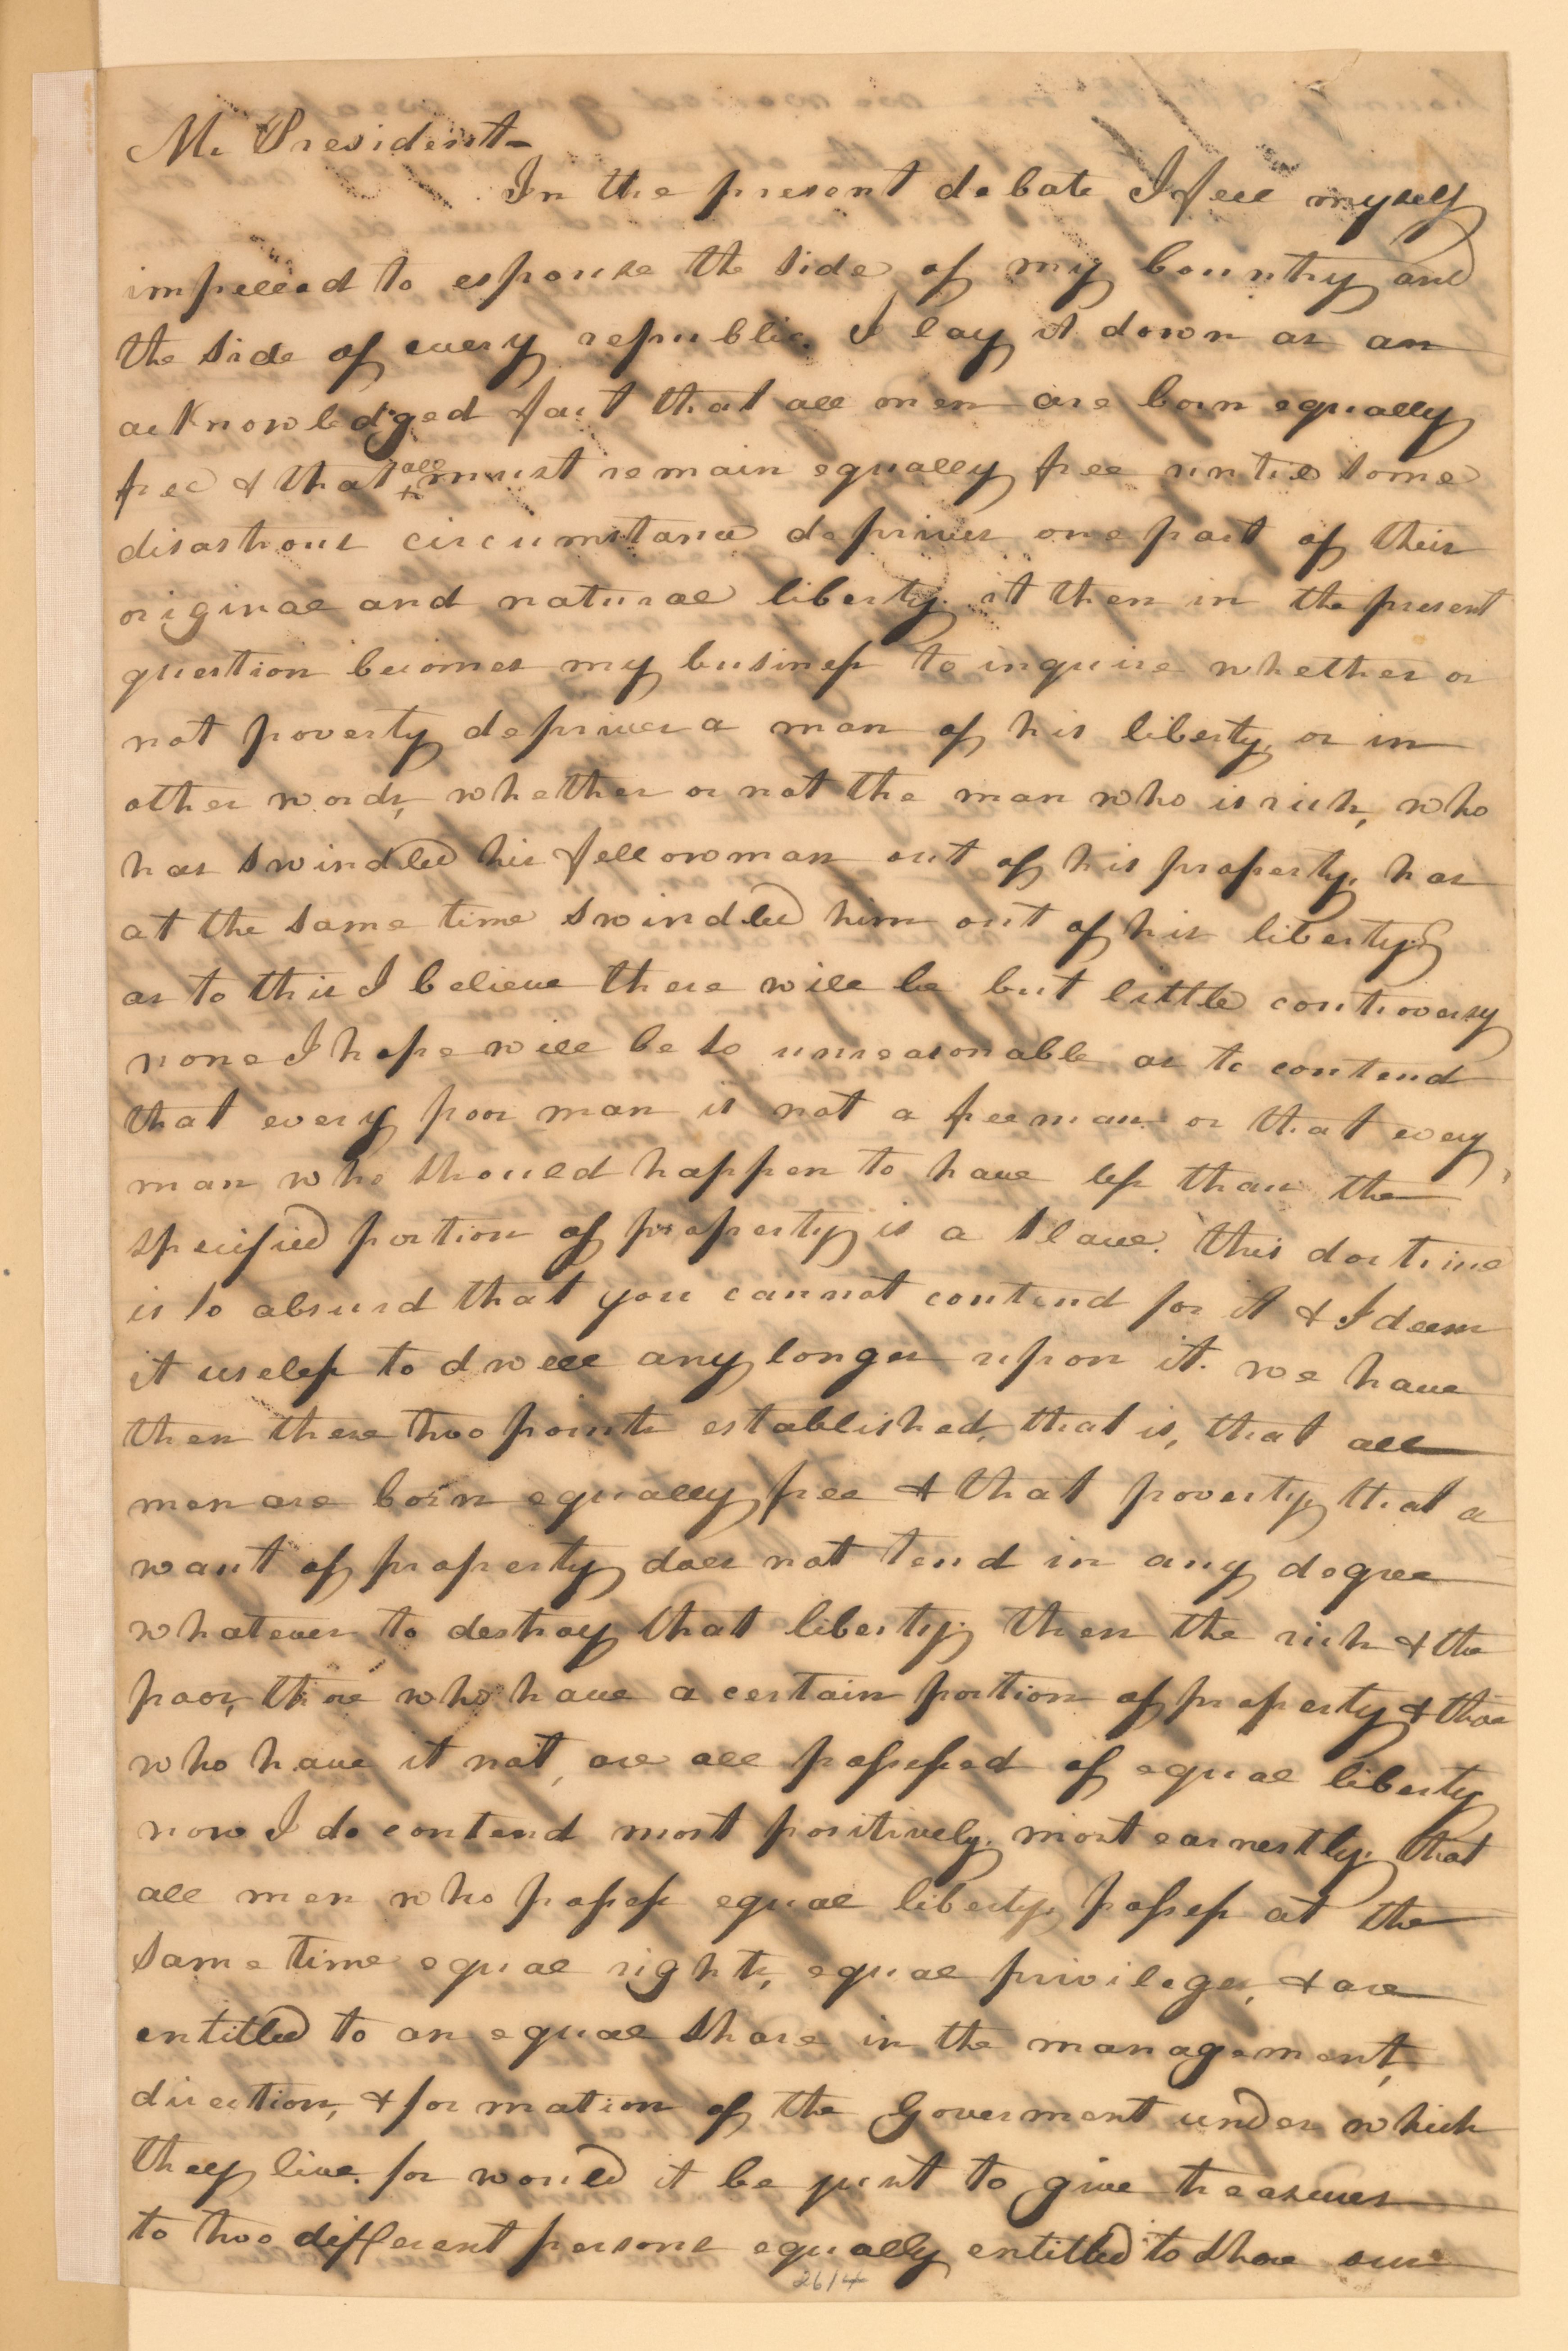 Mr President–
In the present debate I feel myself
impelled to espouse the side of my Country and
the side of every republic. I lay it down as an
acknowledged fact that all men are born equally
free & that all must remain equally free until some
disastrous circumstance deprives one part of their
original and natural liberty. it then in the present
question becomes my business to inquire whether or
not poverty deprives a man of his liberty, or in
other words, whether or not the man who is rich, who
has swindled his fellowman out of his property, has
at the same time swindled him out of his liberty?
as to this I believe there will be but little controversy
none I hope will be so unreasonable as to contend
that every poor man is not a freeman or that every
man who should happen to have less than the
specified portion of property is a slave. this doctrine
is so absurd that you cannot contend for it & I deem
it useless to dwell any longer upon it. we have
then these two points established, that is, that all
men are born equally free & that poverty, that a
want of property does not tend in any degree
whatever to destroy that liberty; then the rich & the
poor, those who have a certain portion of property & those
who have it not, are all possessed of equal liberty
now I do contend most positively, most earnestly, that
all men who possess equal liberty, possess at the
same time equal rights, equal privileges, & are
entitled to an equal share in the management,
direction, & formation of the Goverment under which
they live. for would it be just to give treasures
to two different persons equally entitled to share
2614